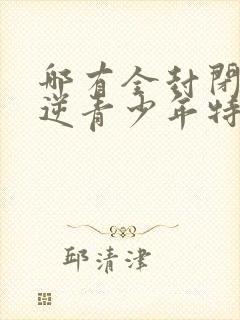 哪有全封闭
逆青少年特
邱清津